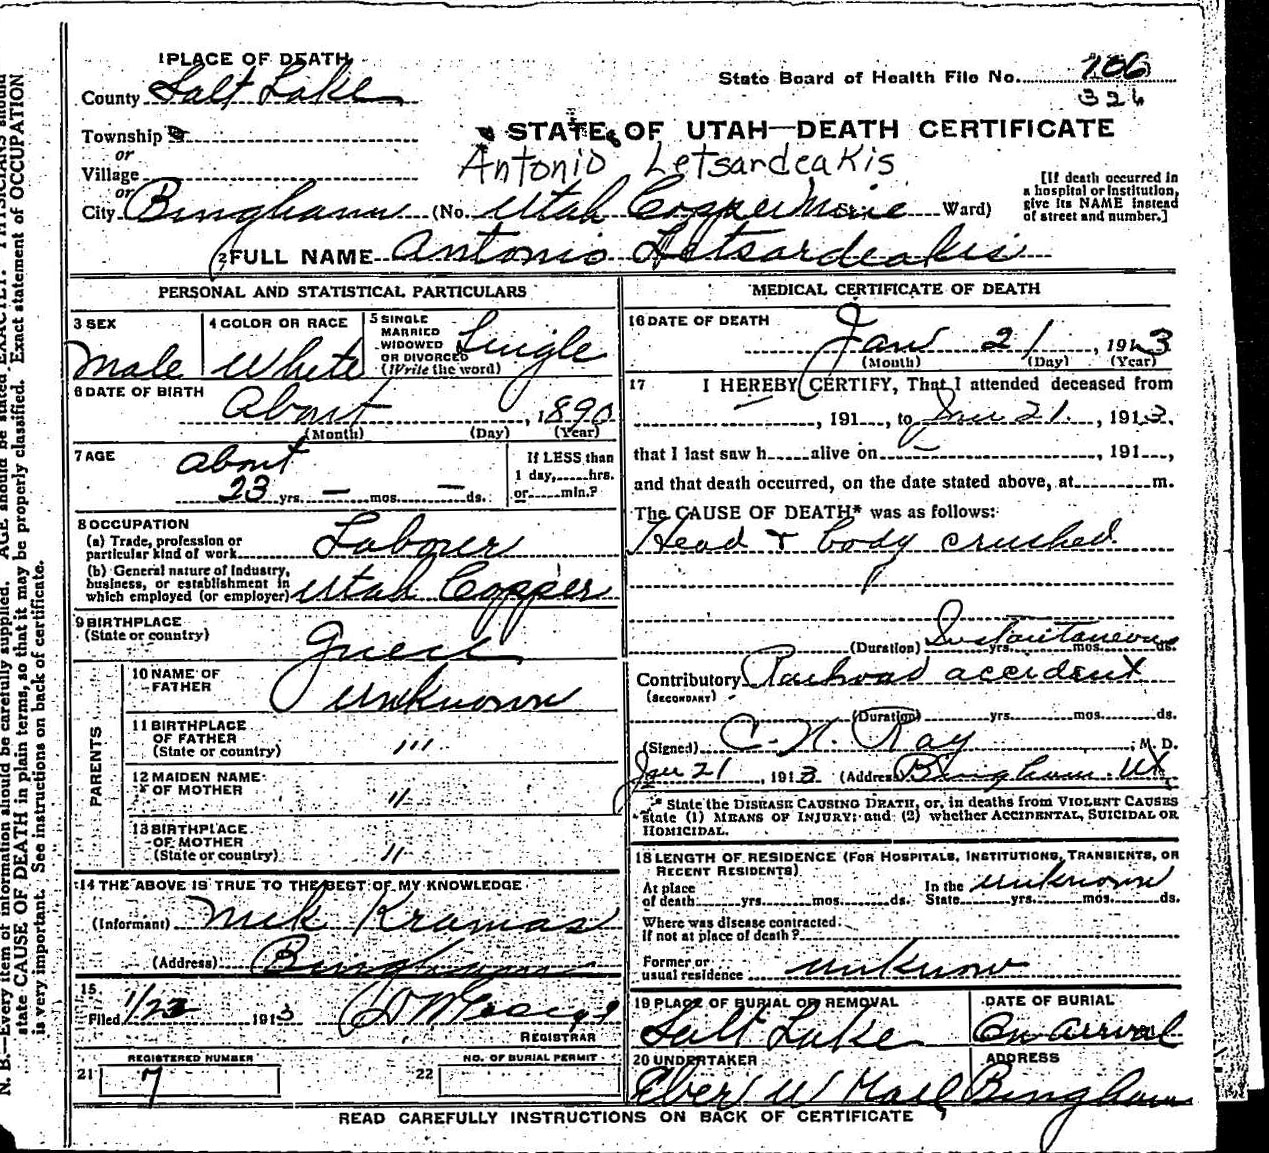 1 PLACE OF DEATH
State Board of Health File No. 706
326
County Salt Lake
Township
or
Village
or
STATE OF UTAH—DEATH CERTIFICATE
Antonio Letsardeakis
City Bingham (No. Utah Copper Mine St. Ward)
[If death occurred in
a hospital or institution,
give its NAME instead
of street and number.]
2 FULL NAME Antonio Letsardeakis
PERSONAL AND STATISTICAL PARTICULARS
3 SEX
Male
4 COLOR OR RACE
White
5 SINGLE
MARRIED
WIDOWED
OR DIVORCED
(Write the word)
Single
6 DATE OF BIRTH
About, 1890
(Month) (Day) (Year)
7 AGE
about
23 yrs. — mos. — ds.
If LESS than
1 day, hrs.
or min.?
8 OCCUPATION
(a) Trade, profession or
particular kind of work Laborer
(b) General nature of Industry,
business, or establishment in
which employed (or employer) Utah Copper
9 BIRTHPLACE
(State or country)
Greece
PARENTS
10 NAME OF
FATHER
unknown
11 BIRTHPLACE
OF FATHER
(State or country) '''
12 MAIDEN NAME
OF MOTHER "
13 BIRTHPLACE
OF MOTHER
(State or country) "
14 THE ABOVE IS TRUE TO THE BEST OF MY KNOWLEDGE
(Informant) Nick Kramas
(Address) Bingham
15
Filed 1/22 1913
REGISTRAR
REGISTERED NUMBER
21 7
NO. OF BURIAL PERMIT
22
MEDICAL CERTIFICATE OF DEATH
16 DATE OF DEATH
Jan 21, 1913
(Month) (Day) (Year)
17 I HEREBY CERTIFY, That I attended deceased from
—, 191, to Jan 21, 1913,
that I last saw h alive on —, 191,
and that death occurred, on the date stated above, at m.
The CAUSE OF DEATH* was as follows:
Head & body crushed
(Duration) Instantaneous yrs. mos. ds.
Contributory Railroad accident
(SECONDARY)
(Duration) yrs. mos. ds.
(Signed) C. N. Ray, M. D.
Jan 21, 1913 (Address) Bingham Ut
* State the DISEASE CAUSING DEATH, or, in deaths from VIOLENT CAUSES
state (1) MEANS OF INJURY; and (2) whether ACCIDENTAL, SUICIDAL OR
HOMICIDAL.
18 LENGTH OF RESIDENCE (FOR HOSPITALS, INSTITUTIONS, TRANSIENTS, OR
RECENT RESIDENTS)
At place
of death yrs. mos. ds.
In the
State yrs. mos. ds.
unknown
Where was disease contracted.
If not at place of death?
Former or
usual residence unknown
19 PLACE OF BURIAL OR REMOVAL
Salt Lake
DATE OF BURIAL
On arrival
20 UNDERTAKER
Eber W Hall
ADDRESS
Bingham
READ CAREFULLY INSTRUCTIONS ON BACK OF CERTIFICATE
N. B.—Every item of information should be carefully supplied. AGE should be stated EXACTLY. PHYSICIANS should
state CAUSE OF DEATH in plain terms, so that it may be properly classified. Exact statement of OCCUPATION
is very important. See instructions on back of certificate.